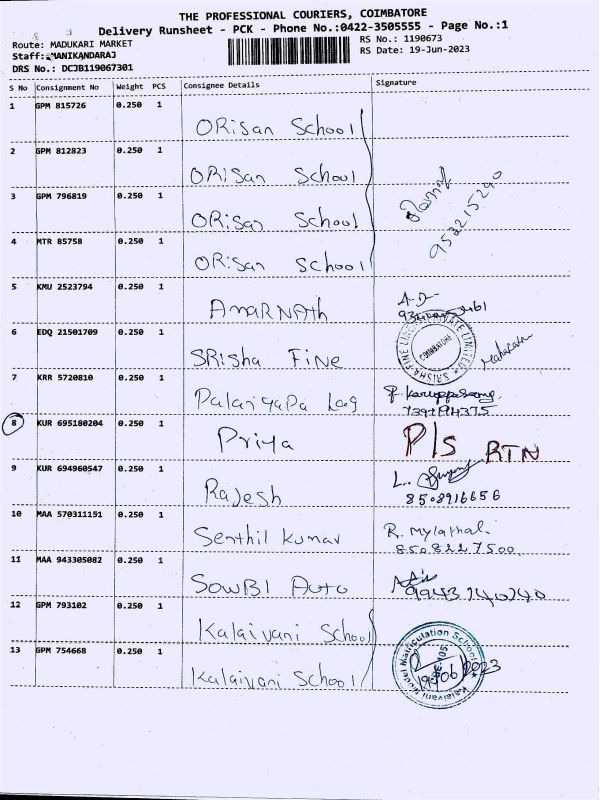 THE PROFESSIONAL COURIERS, COIMBATORE
Delivery Runsheet - PCK - Phone No.:0422-3505555 - Page No.:1
Route: MADUKARI MARKET RS No.: 1190673
Staff: MANIKANDARAJ RS Date: 19-Jun-2023
DRS No.: DCJB119067301
S No Consignment No Weight PCS Consignee Details Signature
1 GPM 815726 0.250 1
ORiSan School
2 GPM 812823 0.250 1
ORiSan School
3 GPM 796819 0.250 1
ORiSan School
4 MTR 85758 0.250 1
ORiSan School
9522215290
5 KMU 2523794 0.250 1
AmaRNAth A.D
6 EDQ 21501709 0.250 1
SRisha Fine
SRISHA FINE PRIVATE LIMITED COIMBATORE
7 KRR 5720810 0.250 1
Palaniyapa
7397194375
8 KUR 695180204 0.250 1
Priya P/S RTN
9 KUR 694960547 0.250 1
Rajesh L.
8508916656
10 MAA 570311151 0.250 1
Senthil Kumar R. Mylathal.
8508227500.
11 MAA 943305082 0.250 1
SowBI Auto 9943740740
12 GPM 793102 0.250 1
Kalaivani School
13 GPM 754668 0.250 1
Kalaivani School
Kalaivani Model Matriculation School
19/06/2023